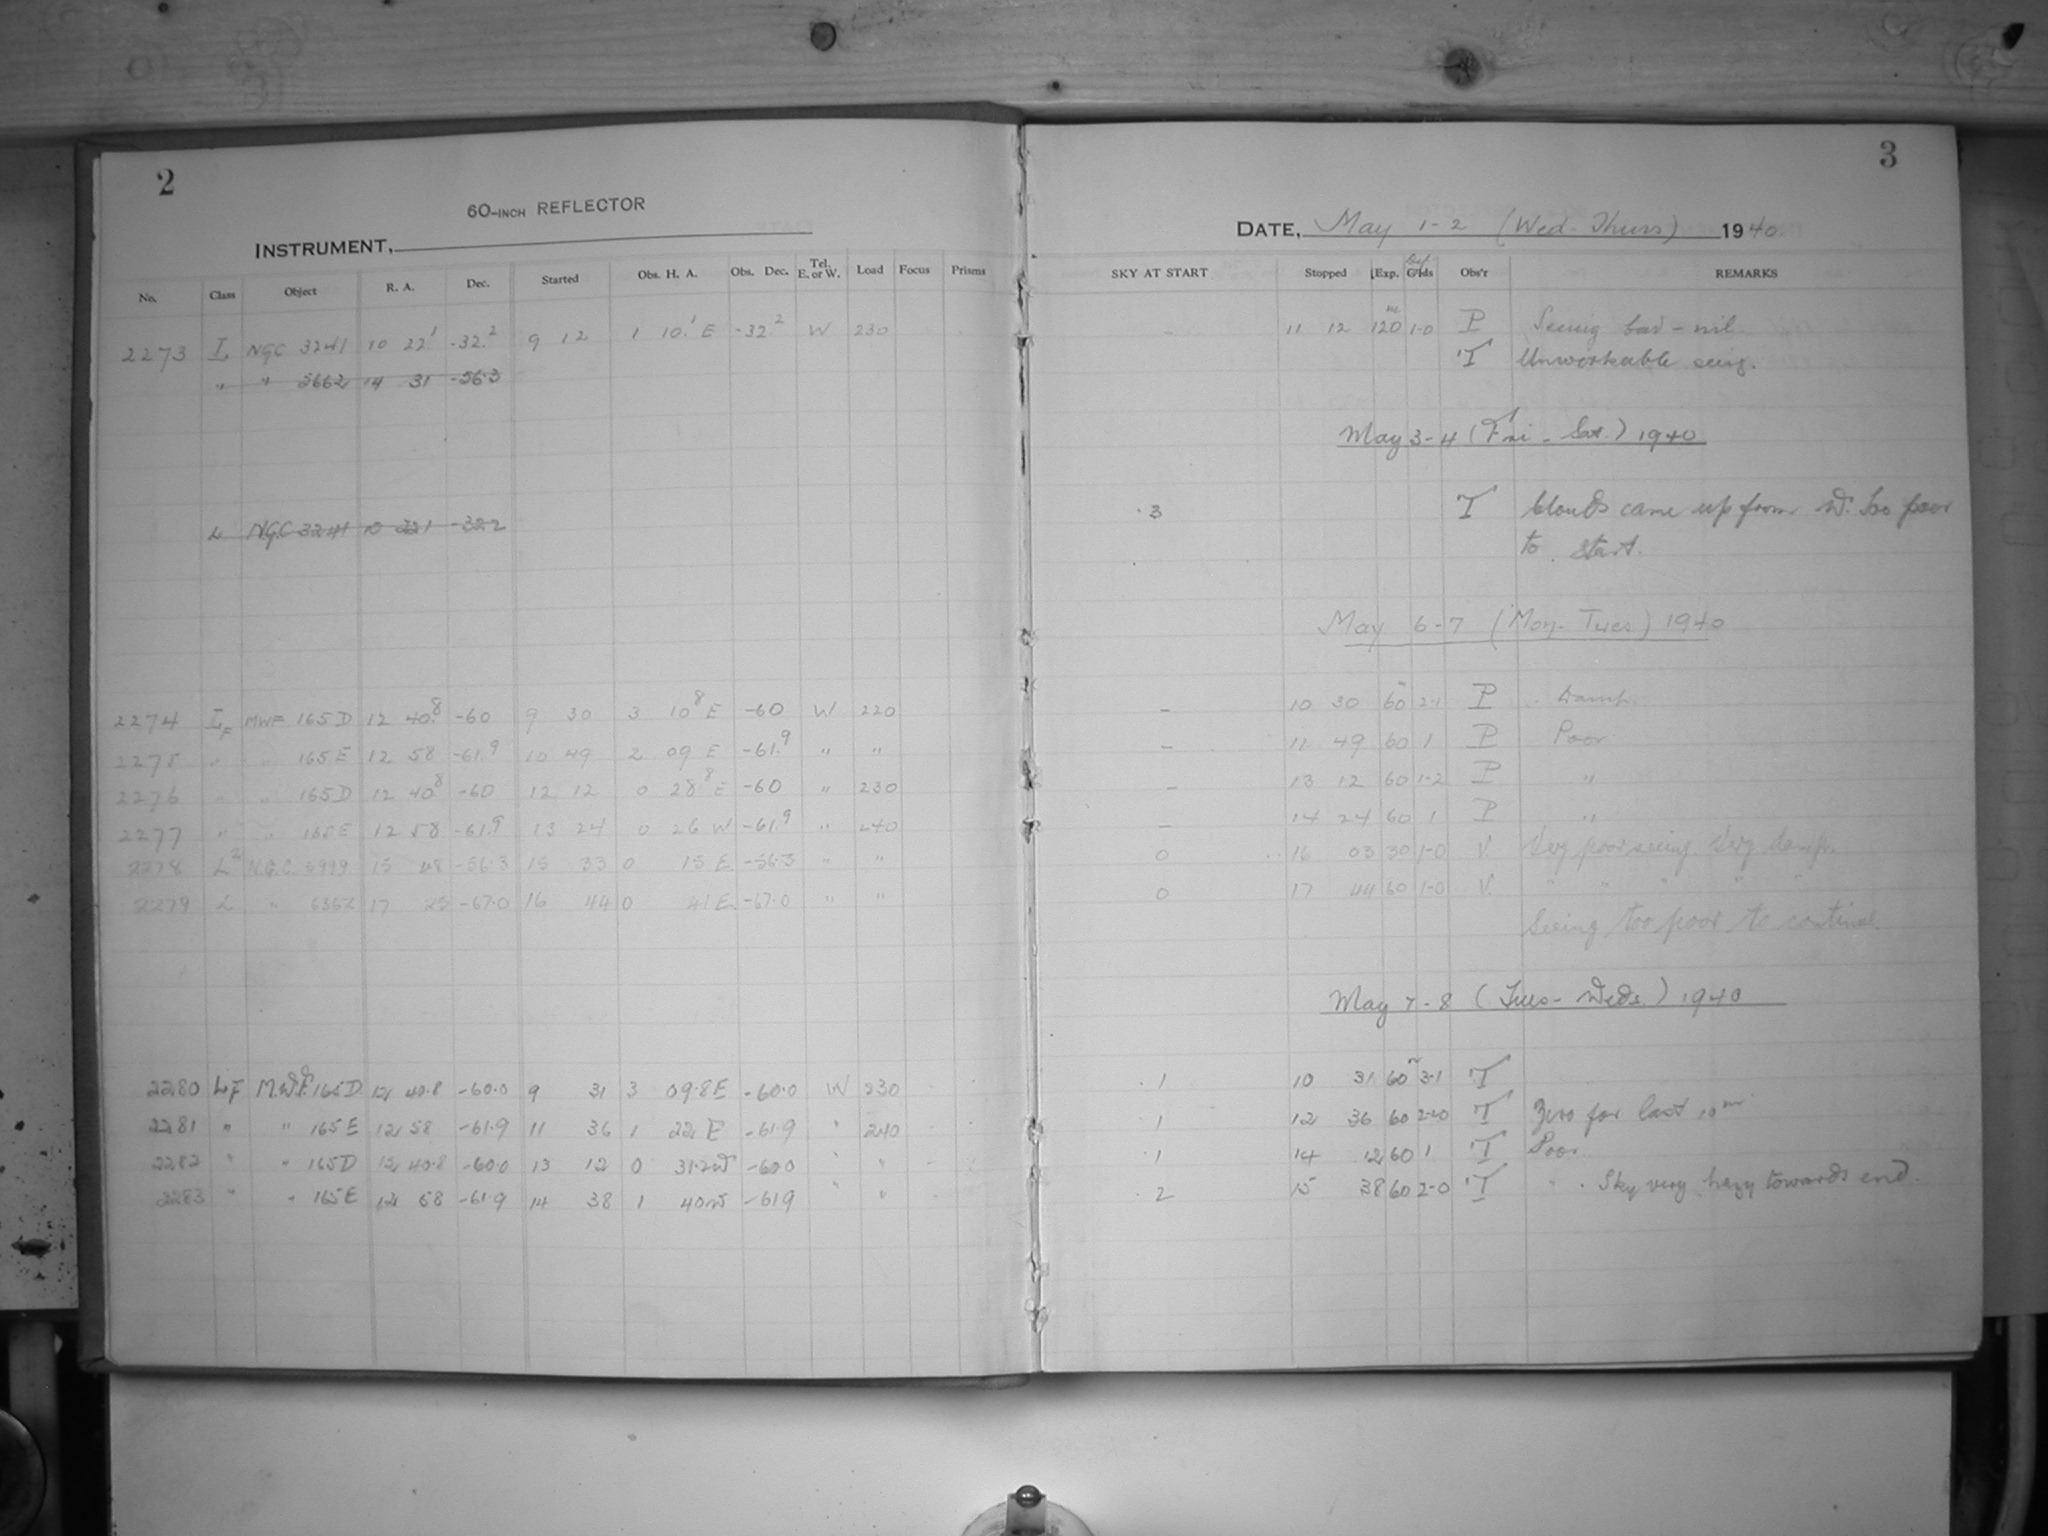 2
60-INCH REFLECTOR
INSTRUMENT,
No. Class Object R. A. Dec. Started Obs. H. A. Obs. Dec. Tel. E. or W. Load Focus Prisms
2273 L NGC 3241 10 22.1 -32.2 9 12 1 10.1 E -32.2 W 230
" " 5662 14 31 -56.3
L N.G.C 3241 10 22.1 -32.2
2274 LF MWF 165D 12 40.8 -60 9 30 3 10.8 E -60 W 220
2275 " " 165E 12 58 -61.9 10 49 2 09 E -61.9 " "
2276 " " 165D 12 40.8 -60 12 12 0 28.8 E -60 " 230
2277 " " 165E 12 58 -61.9 13 24 0 26 W -61.9 " 240
2278 L N.G.C. 5999 15 48 -56.3 15 33 0 15 E -56.3 " "
2279 L " 6362 17 25 -67.0 16 44 0 41 E -67.0 " "
2280 LF M.W.F. 165D 12 40.8 -60.0 9 31 3 09.8 E -60.0 W 230
2281 " " 165E 12 58 -61.9 11 36 1 22 E -61.9 " 240
2282 " " 165D 12 40.8 -60.0 13 12 0 31.2 W -60.0 " "
2283 " " 165E 12 58 -61.9 14 38 1 40 W -61.9 " "
3
DATE, May 1-2 (Wed-Thurs) 1940
SKY AT START Stopped Exp. G'lds Obs'r REMARKS
- 11 12 120m 1-0 P Seeing bad - nil
T Unworkable seeing.
May 3-4 (Fri - Sat.) 1940
3 T Clouds came up from W. Too poor
to start.
May 6-7 (Mon-Tues) 1940
- 10 30 60m 2-1 P Damp.
- 11 49 60 1 P Poor
- 13 12 60 1-2 P "
- 14 24 60 1 P "
0 16 03 30 1-0 V. Very poor seeing. Very damp.
0 17 44 60 1-0 V. " " " " "
Seeing too poor to continue.
May 7-8 (Tues-Weds.) 1940
1 10 31 60m 3-1 T
1 12 36 60 2-0 T Zero for last 10m
1 14 12 60 1 T Poor
2 15 38 60 2-0 T " . Sky very hazy towards end.